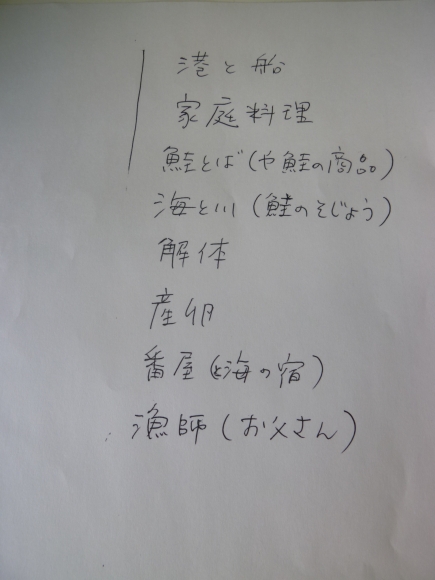 港と船
家庭料理
鮭とば(や鮭の商品)
海と川(鮭のそじょう)
解体
産卵
番屋(と海の宿)
漁師(お父さん)